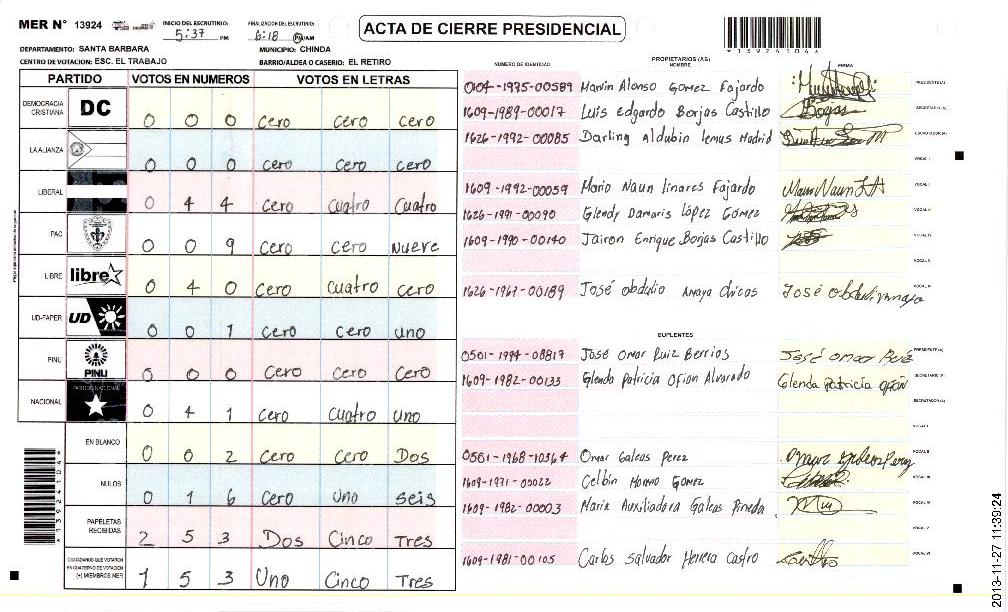 MER N° 13924 INICIO DEL ESCRUTINIO: 5:37 PM FINALIZACION DEL ESCRUTINIO: 6:18 PM/AM
ACTA DE CIERRE PRESIDENCIAL
*13924104*
DEPARTAMENTO: SANTA BARBARA MUNICIPIO: CHINDA
CENTRO DE VOTACION: ESC. EL TRABAJO BARRIO/ALDEA O CASERIO: EL RETIRO
PARTIDO VOTOS EN NUMEROS VOTOS EN LETRAS
DEMOCRACIA CRISTIANA DC 0 0 0 Cero Cero Cero
LA ALIANZA 0 0 0 Cero Cero Cero
LIBERAL 0 4 4 Cero Cuatro Cuatro
PAC 0 0 9 Cero Cero Nueve
LIBRE libre 0 4 0 Cero Cuatro Cero
UD-FAPER UD 0 0 1 Cero Cero Uno
PINU PINU 0 0 0 Cero Cero Cero
NACIONAL PARTIDO NACIONAL 0 4 1 Cero Cuatro Uno
EN BLANCO 0 0 2 Cero Cero Dos
NULOS 0 1 6 Cero Uno Seis
PAPELETAS RECIBIDAS 2 5 3 Dos Cinco Tres
CIUDADANOS QUE VOTARON EN CUADERNO DE VOTACION (+) MIEMBROS MER 1 5 3 Uno Cinco Tres
PROPIETARIOS (AS)
NUMERO DE IDENTIDAD NOMBRE FIRMA
0104-1975-00589 Marvin Alonso Gomez Fajardo PRESIDENTE(A)
1609-1989-00017 Luis Edgardo Borjas Castillo Borjas SECRETARIO(A)
1626-1992-00085 Darling Aldubin Lemus Madrid ESCRUTADOR(A)
VOCAL I
1609-1992-00059 Mario Naun Linares Fajardo VOCAL II
1626-1991-00090 Glendy Damaris López Gómez VOCAL III
1609-1990-00140 Jairon Enrique Borjas Castillo VOCAL IV
VOCAL V
1626-1967-00189 José Obdulio Amaya Chicas José Obdulio Amaya VOCAL VI
SUPLENTES
0501-1994-08817 José Omar Ruiz Berrios José Omar Ruiz PRESIDENTE(A)
1609-1982-00133 Glenda Patricia Ofion Alvarado Glenda Patricia Ofion SECRETARIO(A)
ESCRUTADOR(A)
VOCAL I
0501-1968-10364 Omar Galeas Perez VOCAL II
1609-1971-00022 Celbin Gomez VOCAL III
1609-1982-00003 Maria Auxiliadora Galeas Pineda VOCAL IV
VOCAL V
1609-1981-00105 Carlos Salvador Herrera Castro VOCAL VI
*13924104*
2013-11-27 11:39:24